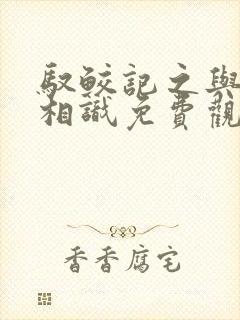 馭鮫記之與
相識免費觀
香香腐宅